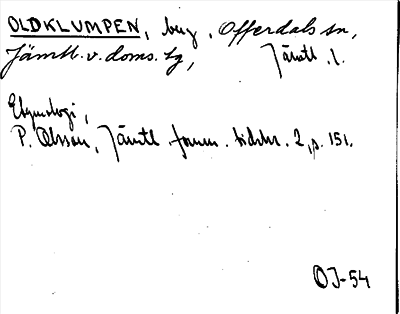 OLDKLUMPEN, berg, Offerdals sn,
Jämtl. v. doms. tg, Jämtl. l.
Etymologi,
P. Olsson, Jämtl. fornm. tidskr. 2, p. 151.
OJ-54